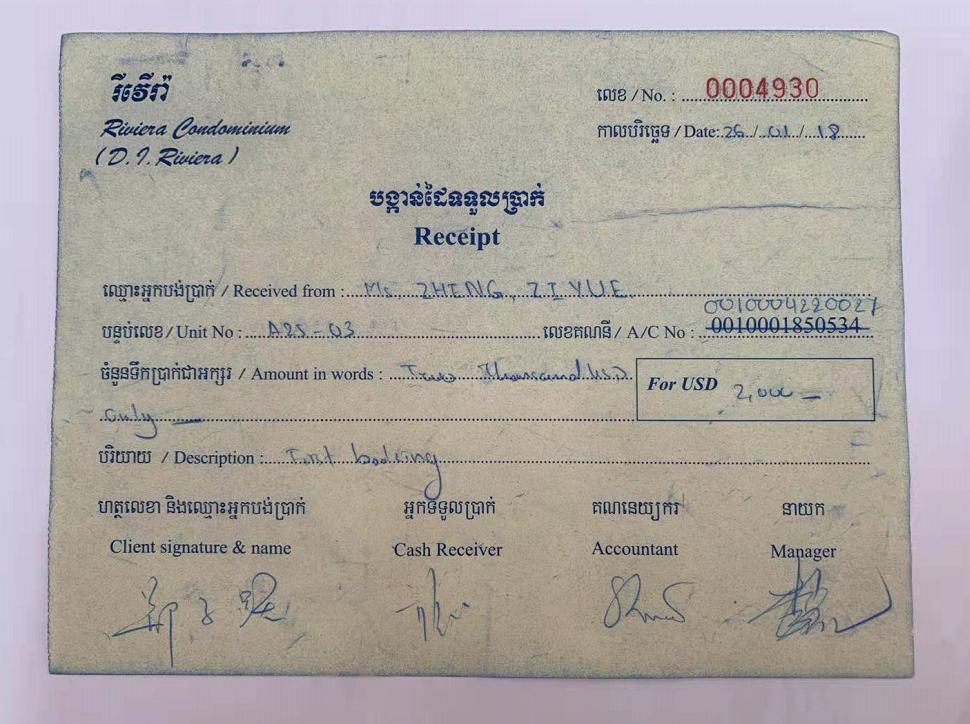 រីវើរ៉ា
Riviera Condominium
(D.I. Riviera)
លេខ / No. : 0004930
កាលបរិច្ឆេទ / Date: 26 / 01 / 18
បង្កាន់ដៃទទួលប្រាក់
Receipt
ឈ្មោះអ្នកបង់ប្រាក់ / Received from : Ms. ZHENG, ZI YUE
0010004220027
បន្ទប់លេខ / Unit No : A25-03 លេខគណនី / A/C No : 0010001850534
ចំនួនទឹកប្រាក់ជាអក្សរ / Amount in words : Two Thousand USD For USD 2,000 =
only
បរិយាយ / Description : booking
ហត្ថលេខា និងឈ្មោះអ្នកបង់ប្រាក់ អ្នកទទួលប្រាក់ គណនេយ្យករ នាយក
Client signature & name Cash Receiver Accountant Manager